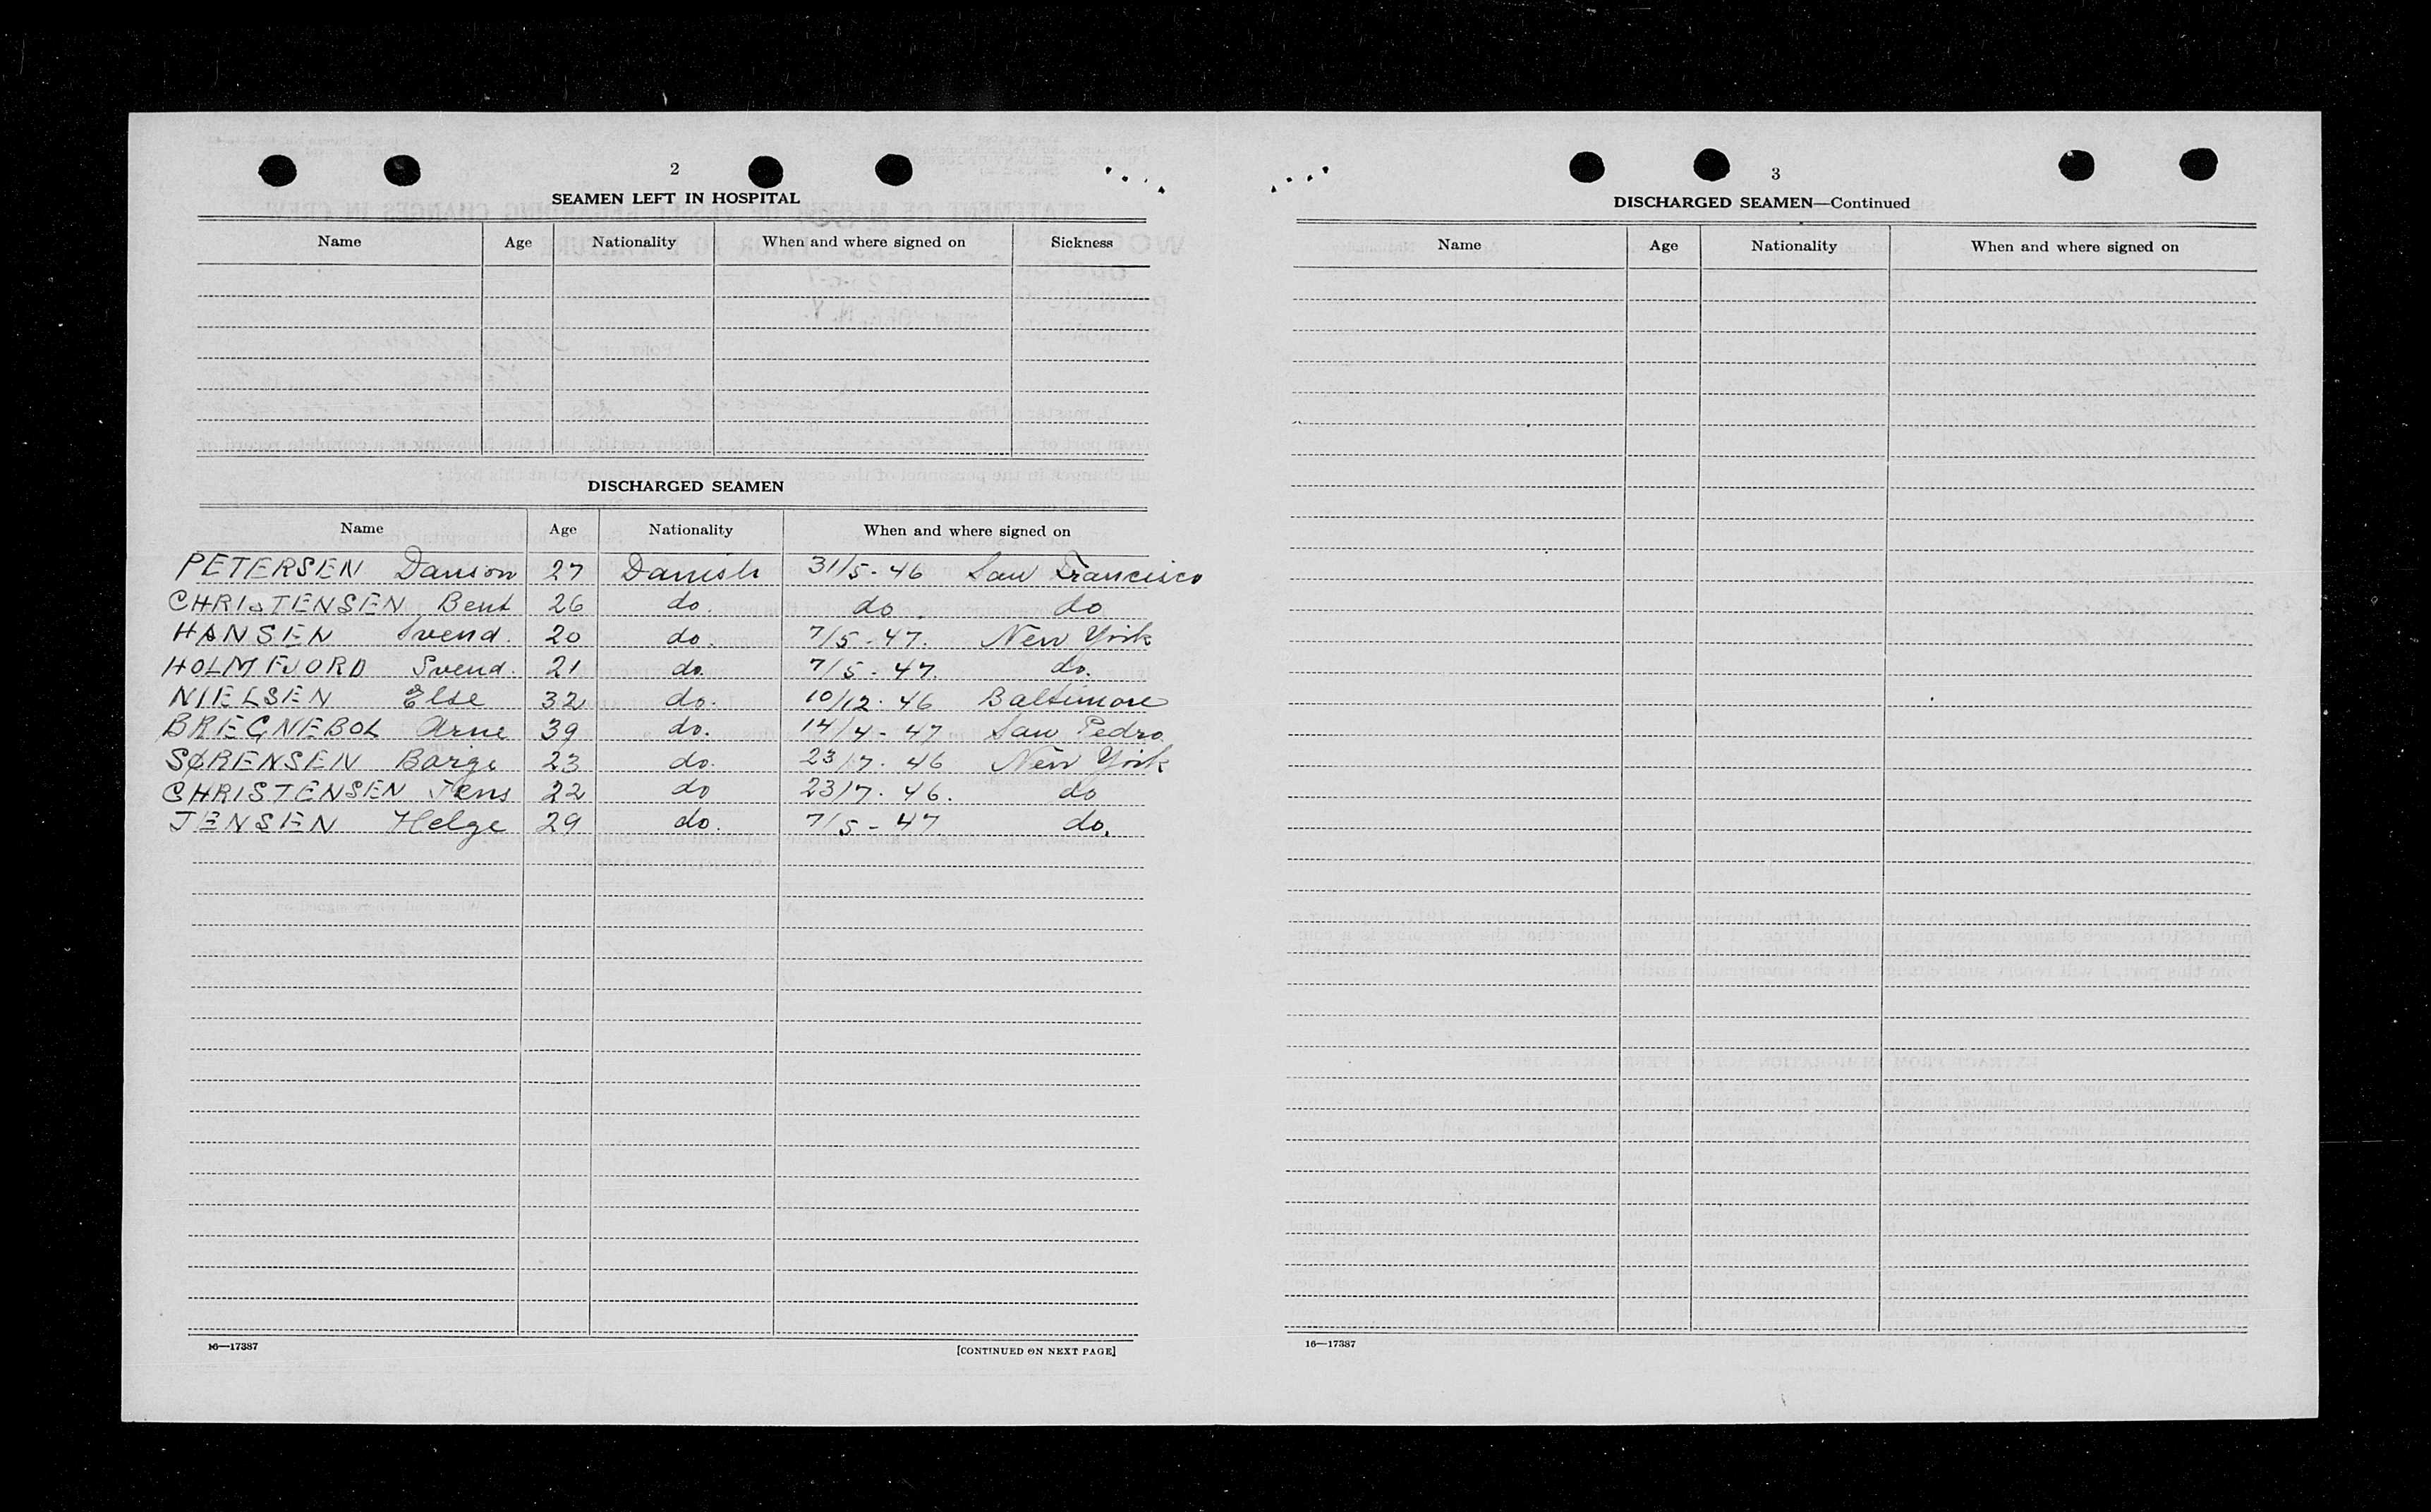 2
SEAMEN LEFT IN HOSPITAL
Name Age Nationality When and where signed on Sickness
DISCHARGED SEAMEN
Name Age Nationality When and where signed on
PETERSEN Danson 27 Danish 31/5-46 San Francisco
CHRISTENSEN Bent 26 do. do. do
HANSEN Svend. 20 do. 7/5-47. New York
HOLMFJORD Svend. 21 do. 7/5-47. do.
NIELSEN Else 32 do. 10/12-46 Baltimore
BREGNEBOL Arne 39 do. 14/4-47 San Pedro
SØRENSEN Børge 23 do. 23/7-46 New York
CHRISTENSEN Jens 22 do 23/7-46. do
JENSEN Helge 29 do. 7/5-47 do.
16—17387
[CONTINUED ON NEXT PAGE]
3
DISCHARGED SEAMEN—Continued
Name Age Nationality When and where signed on
16—17387